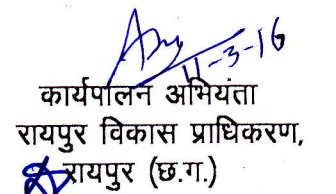 11-3-16
कार्यपालन अभियंता
रायपुर विकास प्राधिकरण,
रायपुर (छ.ग.)